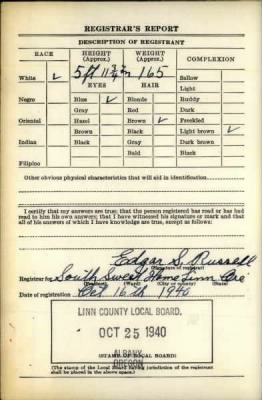 REGISTRAR'S REPORT
DESCRIPTION OF REGISTRANT
RACE HEIGHT (Approx.) WEIGHT (Approx.) COMPLEXION
White ✓ 5 ft 11 3/4 in 165 Sallow
EYES HAIR Light
Negro Blue ✓ Blonde Ruddy
Gray Red Dark
Oriental Hazel Brown ✓ Freckled
Brown Black Light brown ✓
Indian Black Gray Dark brown
Bald Black
Filipino
Other obvious physical characteristics that will aid in identification
I certify that my answers are true; that the person registered has read or has had
read to him his own answers; that I have witnessed his signature or mark and that
all of his answers of which I have knowledge are true, except as follows:
Edgar S. Russell
(Signature of registrar)
Registrar for South Sweet Home Linn Ore
(Precinct) (Ward) (City or county) (State)
Date of registration Oct 16th 1940
LINN COUNTY LOCAL BOARD.
OCT 25 1940
ALBANY
OREGON
(STAMP OF LOCAL BOARD)
(The stamp of the Local Board having jurisdiction of the registrant
shall be placed in the above space.)